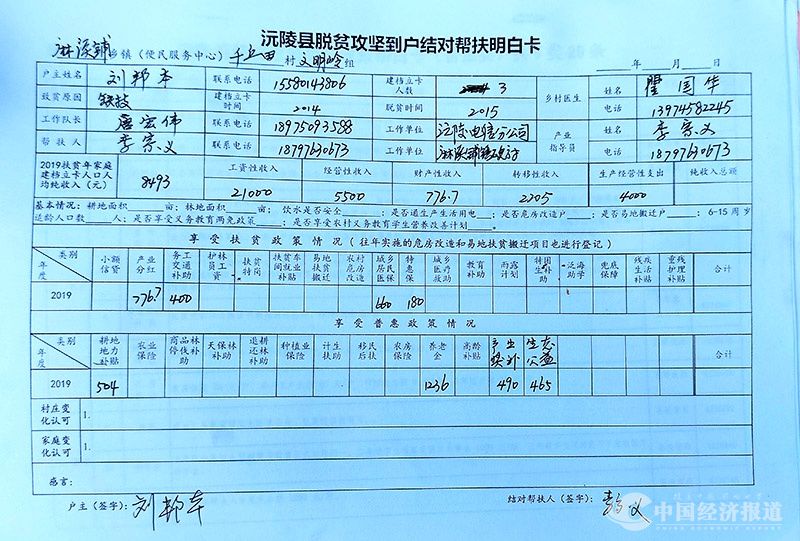 沅陵县脱贫攻坚到户结对帮扶明白卡
麻溪铺乡镇（便民服务中心）千丘田村文明岭组 年 月 日
户主姓名 刘邦本 联系电话 15580143806 建档立卡人数 3 乡村医生 姓名 瞿国华
致贫原因 缺技 建档立卡时间 2014 脱贫时间 2015 电话 13974582245
工作队长 唐宏伟 联系电话 18975093588 工作单位 沅陵电信分公司 产业指导员 姓名 李宗义
帮扶人 李宗义 联系电话 18797630673 工作单位 麻溪铺镇 电话 18797630673
2019扶贫年家庭建档立卡人口人均纯收入（元） 8493 工资性收入 经营性收入 财产性收入 转移性收入 生产经营性支出 纯收入总额
21000 5500 776.7 2205 4000
基本情况：耕地面积 亩；林地面积 亩； 饮水是否安全 ；是否通生产生活用电 ；是否危房改造户 ；是否易地搬迁户 ；6-15周岁
适龄人口数 人；是否享受义务教育两免政策 ；是否享受农村义务教育学生营养改善计划 。
享受扶贫政策情况（往年实施的危房改造和易地扶贫搬迁项目也进行登记）
类别 年度 小额信贷 产业分红 务工交通补助 护林员工资 扶贫特岗 扶贫车间就业补贴 易地扶贫搬迁 农村危房改造 城乡居民医保 特惠保 城乡医疗救助 教育补助 雨露计划 特困生补助 泛海助学 兜底保障 残疾生活补贴 重残护理补贴 合计
2019 776.7 400 660 180
享受普惠政策情况
类别 年度 耕地地力补贴 农业保险 商品林停伐补助 天保林补助 退耕还林补助 种植业保险 计生扶助 移民后扶 农房保险 养老金 高龄补贴 产业奖补 生态公益 合计
2019 504 1236 490 465
村庄变化认可 1.
家庭变化认可 1.
感言：
户主（签字）： 刘邦本 结对帮扶人（签字）：
中国经济报道